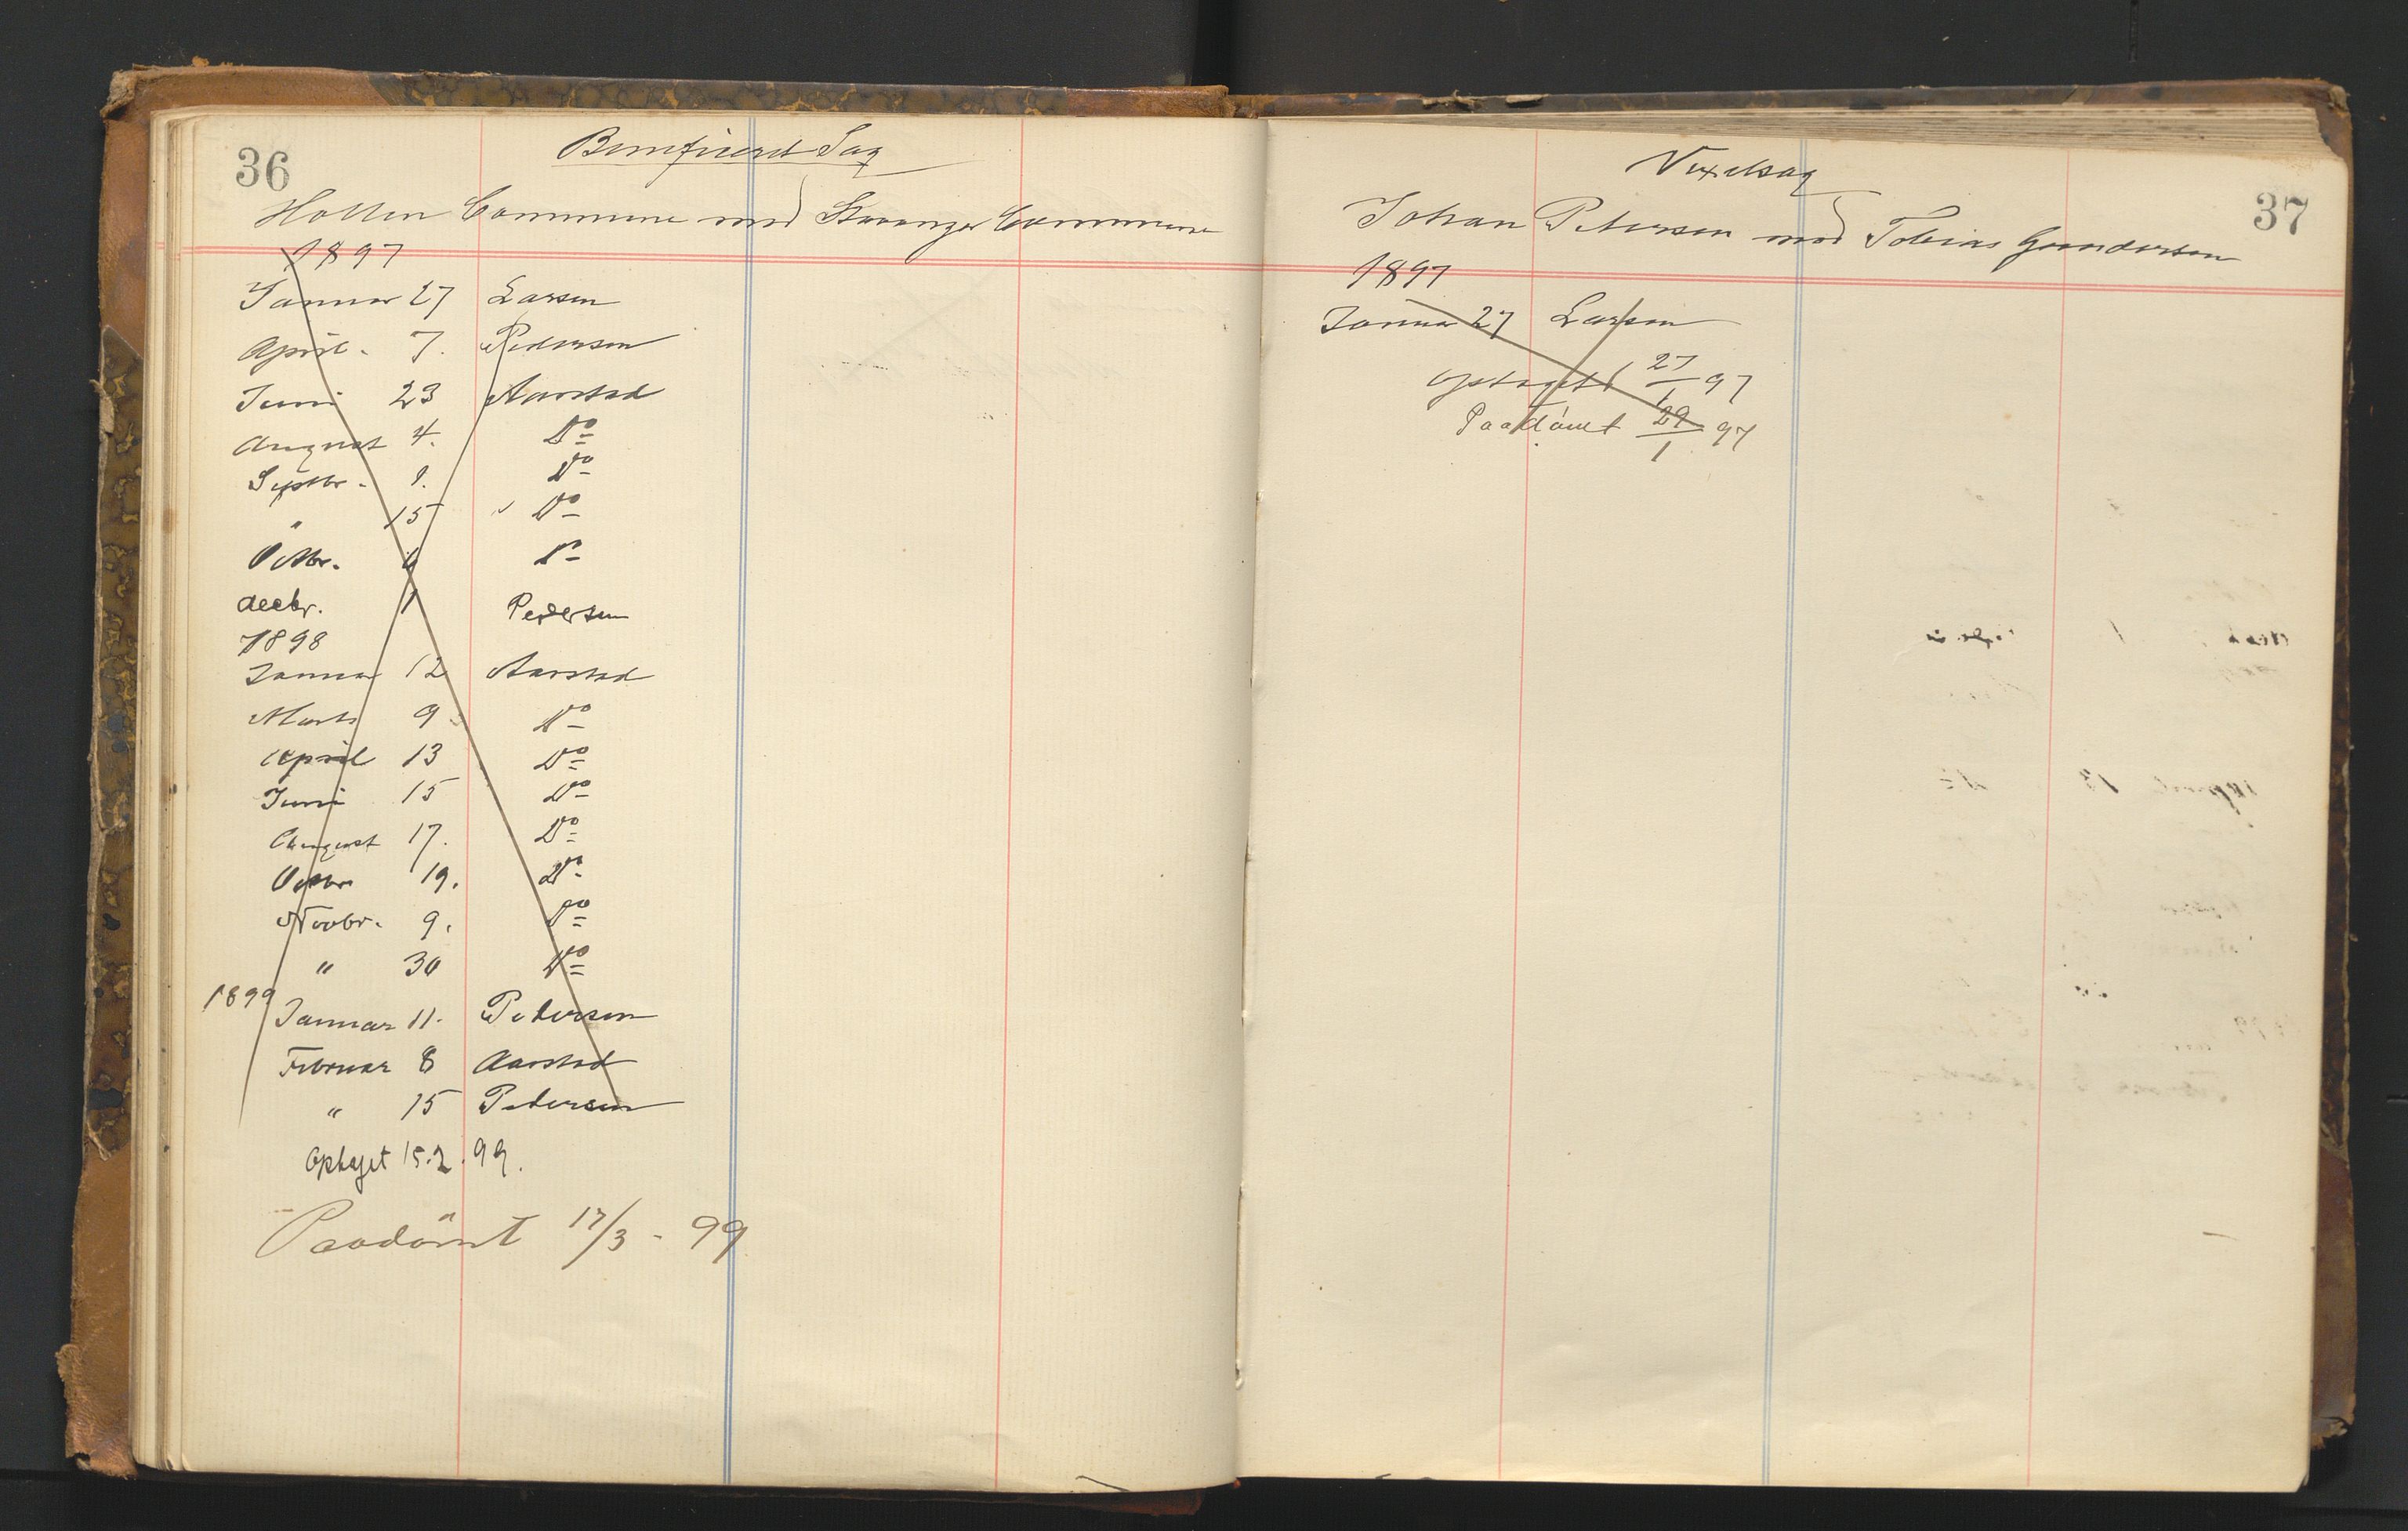 36
Beneficeret Sag
Holten Commune mod Stavanger Commune
1897
Januar 27 Larsen
April. 7. Pedersen
Juni 23 Aarstad
August 4. Do
Septbr. 1. Do
" 15 Do
Octbr. 6 Do
decbr. 1 Pedersen
1898
Januar 12 Aarstad
Marts 9 Do
April 13 Do
Juni 15 Do
August 17. Do
Octbr 19. Do
Novbr. 9. Do
" 30 Do
1899
Januar 11. Petersen
Februar 8 Aarstad
" 15 Petersen
Optaget 15.2.99.
Paadömt 17/3 - 99
37
Vexelsag
Johan Petersen mod Tobias Gundersen
1897
Januar 27 Larsen
optaget 27/1 97
Paadömt 29/1 97